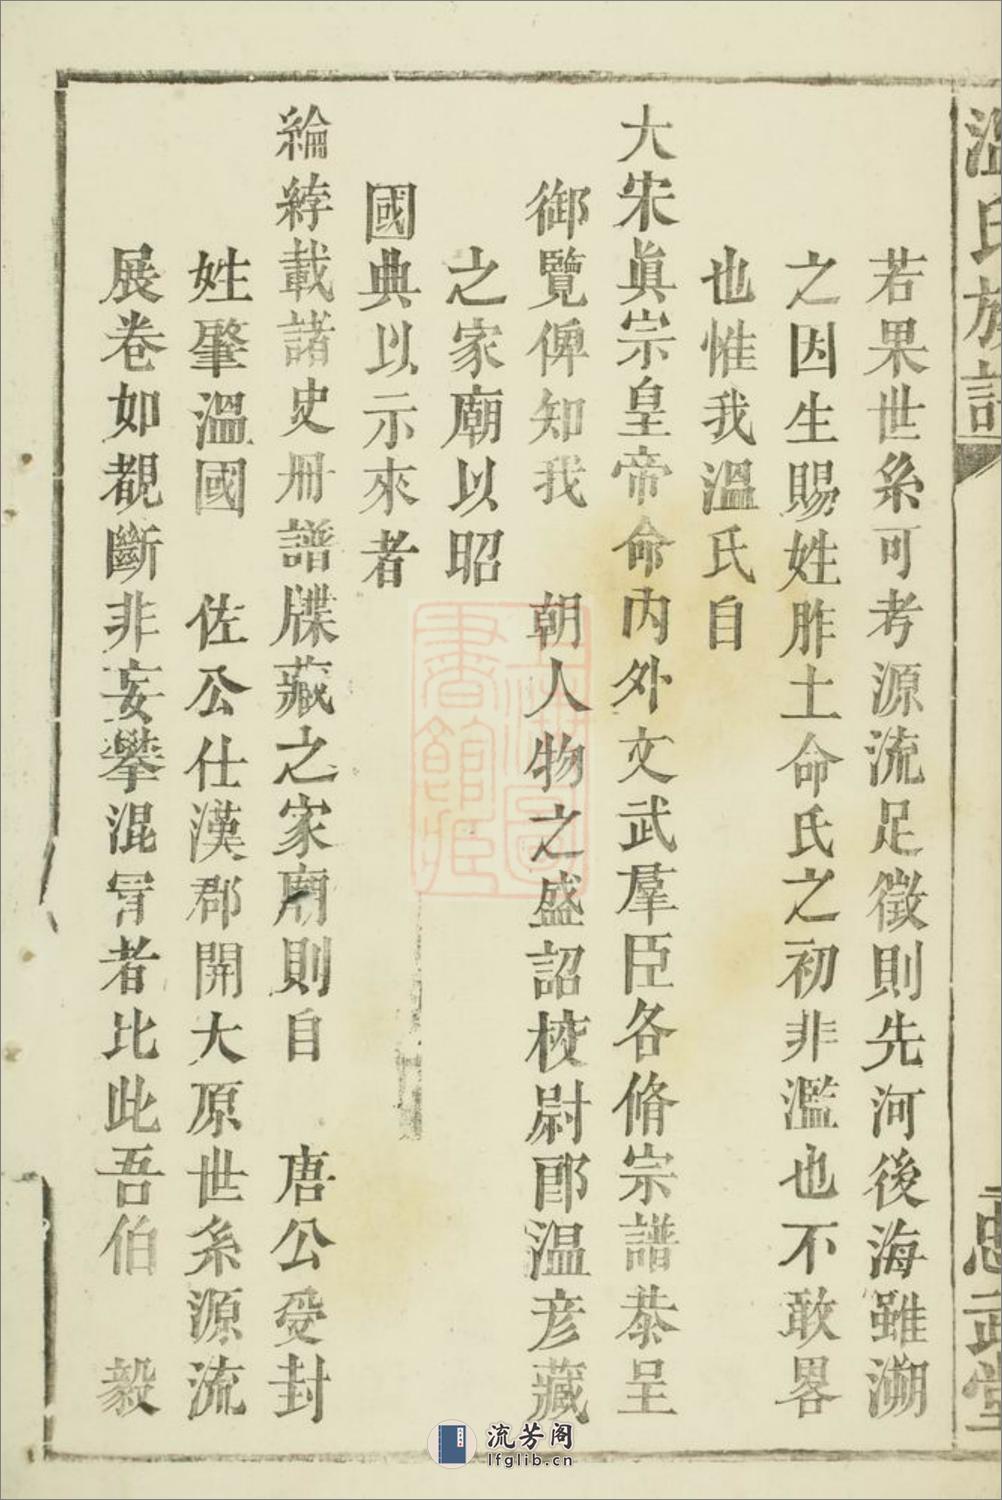 溫氏族譜
忠武堂
若果世系可考源流足徵則先河後海雖溯
之因生賜姓胙土命氏之初非濫也不敢畧
也惟我溫氏自
大宋眞宗皇帝命內外文武羣臣各脩宗譜恭呈
御覽俾知我 朝人物之盛詔校尉郎温彥藏
之家廟以昭
國典以示來者
綸綍載諸史册譜牒藏之家廟則自 唐公受封
姓肇溫國 佐公仕漢郡開大原世系源流
展卷如覩斷非妄攀混冐者比此吾伯 毅
流芳阁
lfglib.cn